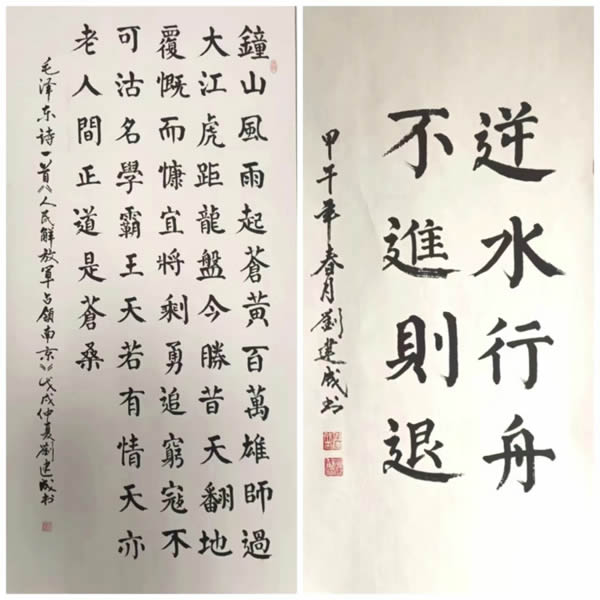 鐘山風雨起蒼黃百萬雄師過
大江虎距龍盤今勝昔天翻地
覆慨而慷宜將剩勇追窮寇不
可沽名學霸王天若有情天亦
老人間正道是蒼桑
毛泽东诗一首《人民解放軍占領南京》戊戌仲夏劉建成书
逆水行舟
不進則退
甲午年春月劉建成书